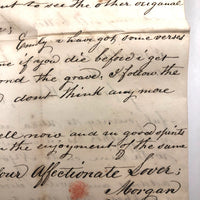 t to see the other origunal
Emily i have got some verses
me if you die before i get
ond the grave, I follow the
d dont think any more
ell now and in good spirits
n the enjoyment of the same
our Affectionate Lover;
Morgan